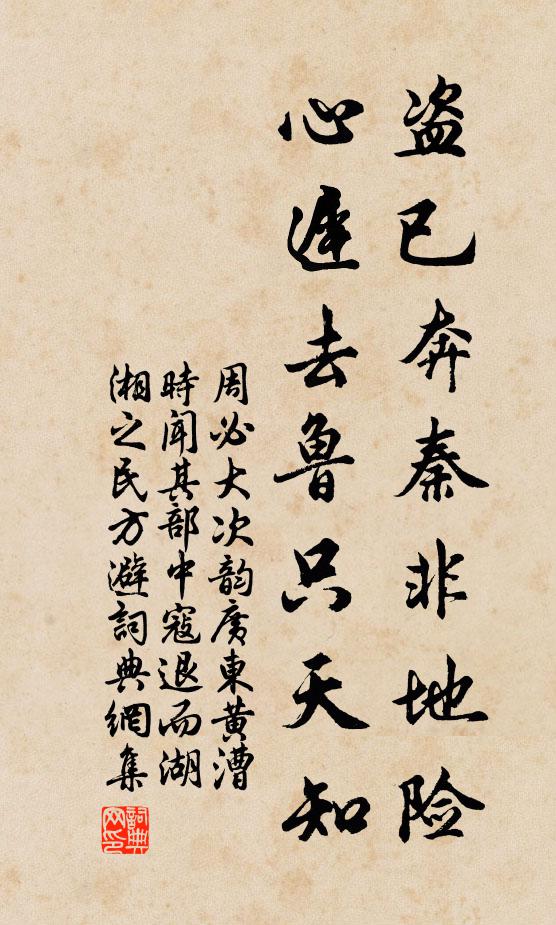 盗已奔秦非地险
心遅去鲁只天知
周必大次韵廣東黄漕
時闻其部中寇退而湖
湘之民方避詞典網集
詞典
网印